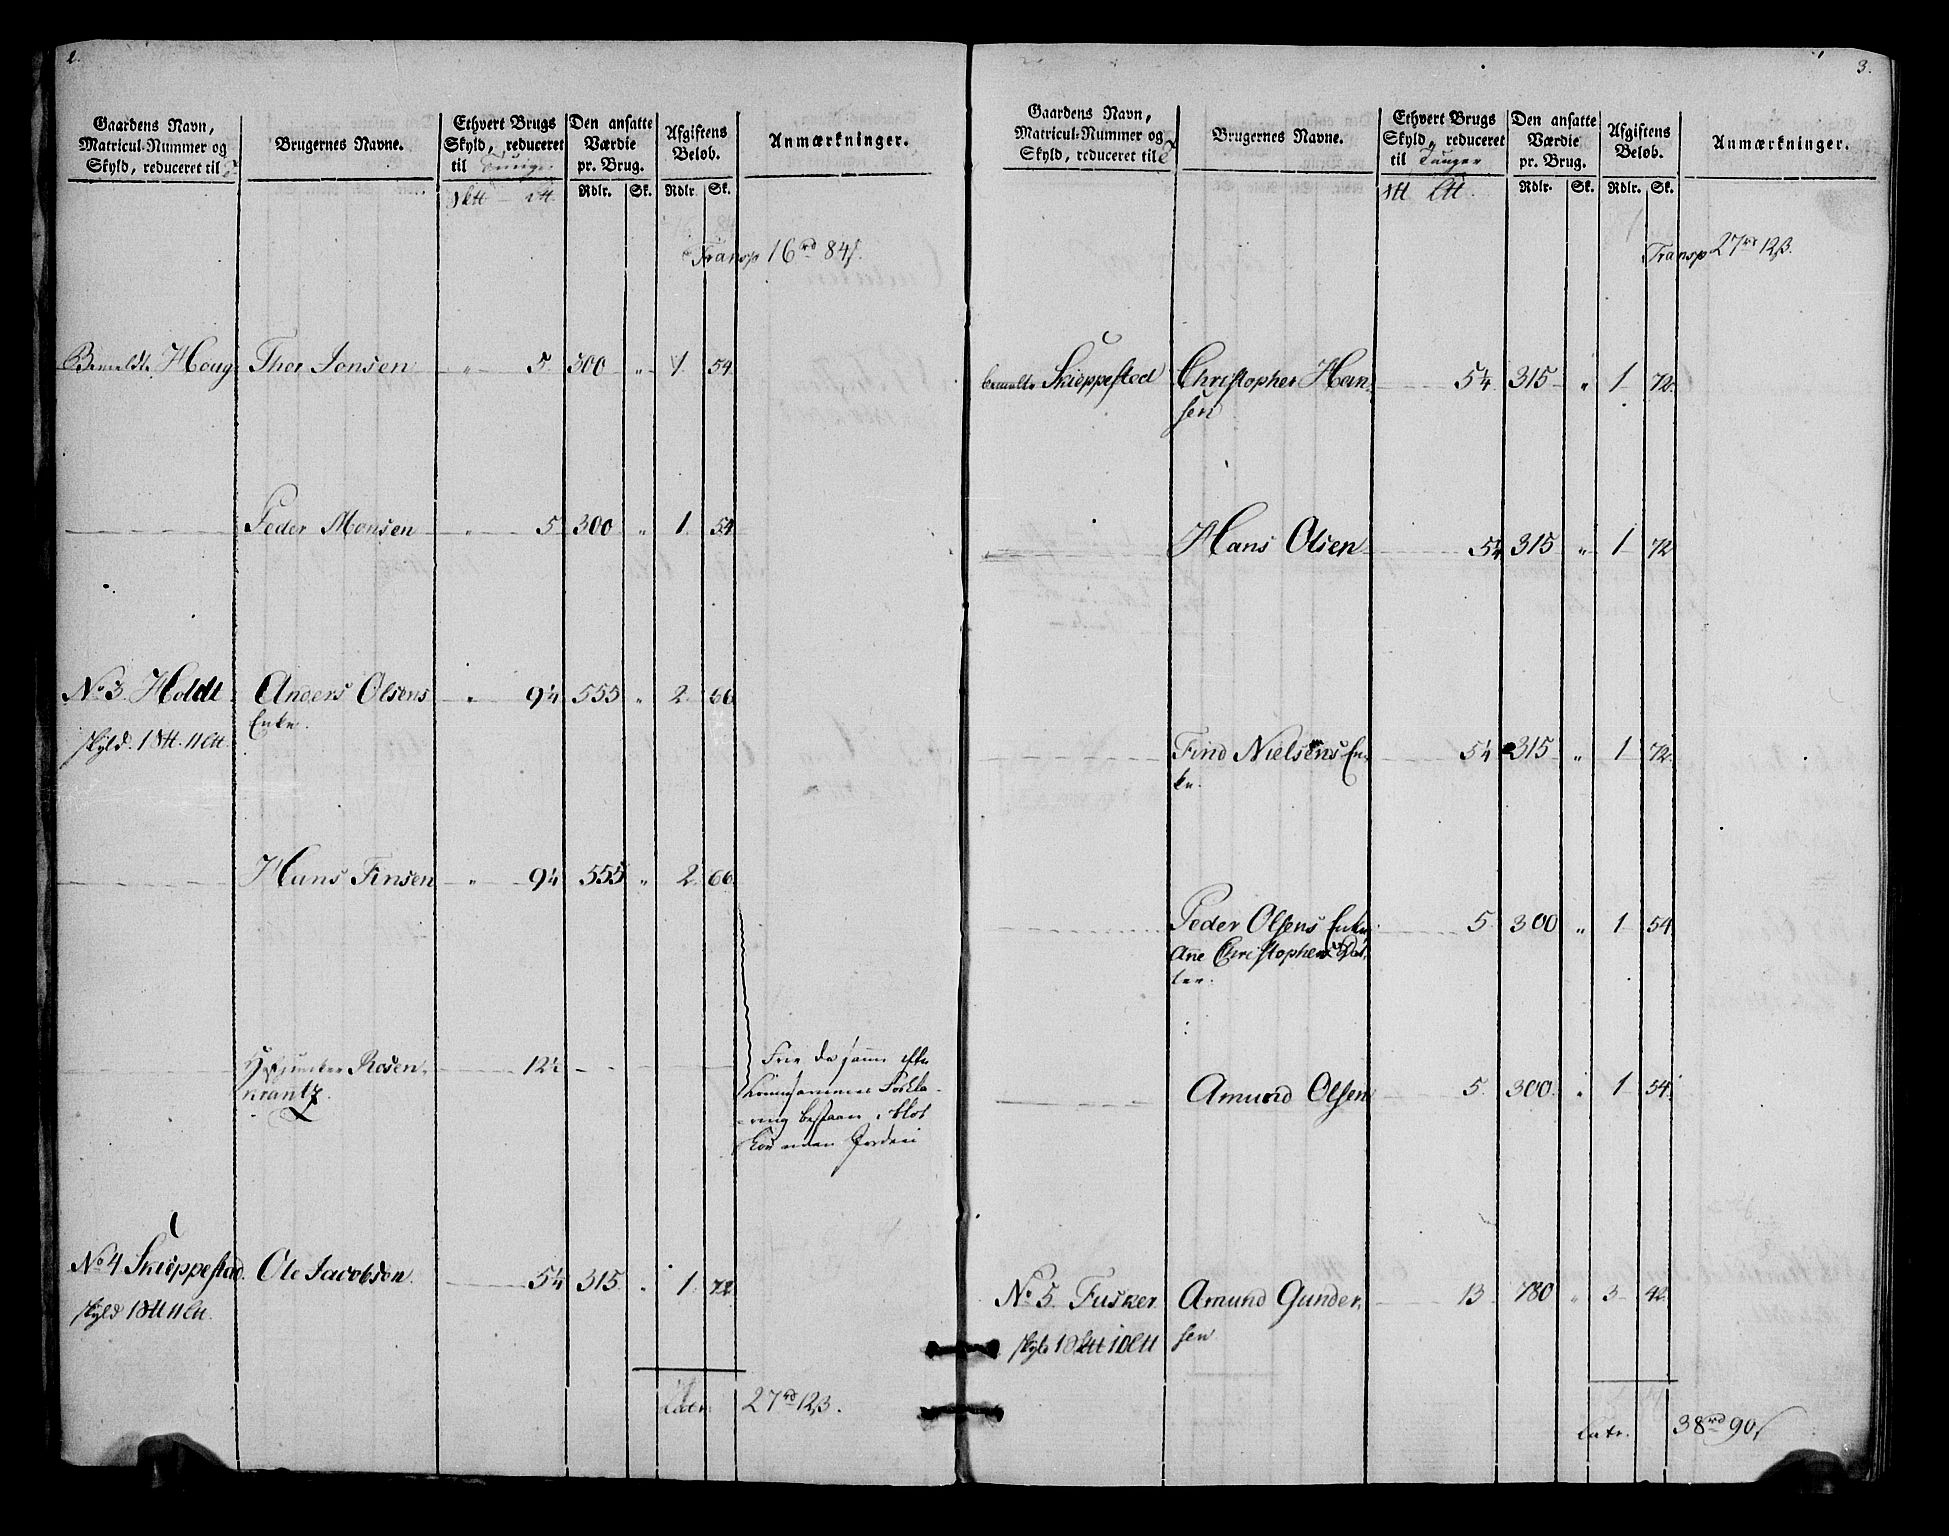 2.
Gaardens Navn, Matricul-Nummer og Skyld, reduceret til
Brugernes Navne.
Ethvert Brugs Skyld, reduceret til Tunger
Den ansatte Værdie pr. Brug.
Afgiftens Beløb.
Anmærkninger.
Rdlr. Sk. Rdlr. Sk.
Transp 16 rd 84 s.
Bemeldte Houg Thor Jonsen " 5. 300 " 1 54
Peder Monsen " 5 300 " 1. 54
No 3. Holdt Anders Olsens " 9¼ 555 " 2. 66
Enke.
skyld. 1 8tt. 11 Ltt.
Hans Finsen " 9¼ 555 " 2. 66.
Hofjunker Rosen-
krantz. 12½
Frie da samme efter
Kommissionens Forkla-
ring bestaar i blot
Skov uden Jorder
No 4 Skieppestad Ole Jacobsen 5¼ 315 " 1. 72
skyld 1 8tt 11 Ltt.
Latr. 27 rd 12 β.
3.
Gaardens Navn, Matricul-Nummer og Skyld, reduceret til
Brugernes Navne.
Ethvert Brugs Skyld, reduceret til Tunger
Den ansatte Værdie pr. Brug.
Afgiftens Beløb.
Anmærkninger.
Rdlr. Sk. Rdlr. Sk.
Transp 27 rd 12 β.
bemeldte Skieppestad Christopher Han-
sen 5¼ 315 " 1 72.
Hans Olsen 5¼ 315 " 1 72
Find Nielsens En-
ke. 5¼ 315 " 1 72.
Peder Olsens Enke 5 300 " 1 54
Ane Christophers Dat-
ter.
Amund Olsen 5 300 " 1 54.
No 5. Fusker Amund Gunder- 13 780 " 3 42.
skyld 1 8tt 10 Ltt sen
Latr. 38 rd 90 s